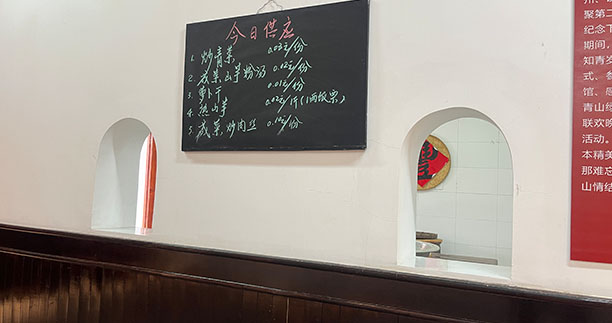 今日供应
1. 炒青菜 0.03元/份
2. 咸菜山芋粉汤 0.02元/份
3. 萝卜干 0.01元/份
4 熟山芋 0.02元/斤(1两饭票)
5 咸菜炒肉丝 0.10元/份
聚第二
纪念下
期间,
知青岁
式、参
馆、感
青山绿
联欢晚
活动。
本精美
那难忘
山情结